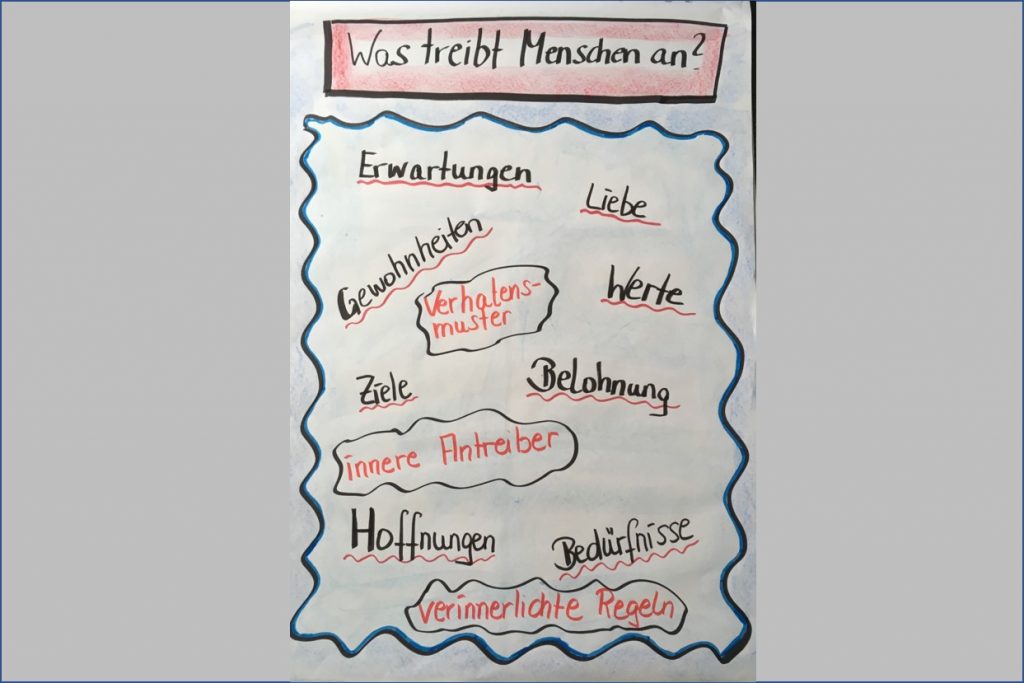 Was treibt Menschen an?
Erwartungen
Liebe
Gewohnheiten
Werte
Verhatens-
muster
Ziele
Belohnung
innere Antreiber
Hoffnungen
Bedürfnisse
verinnerlichte Regeln